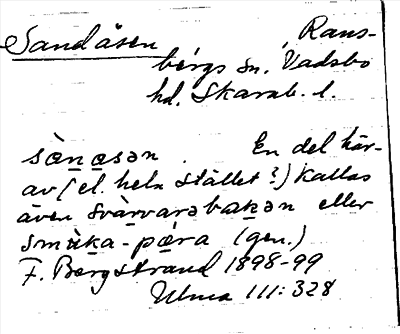 Sandåsen, Rans-
bergs sn. Vadsbo
hd. Skarab. l.
sàn̲a̲sən. En del här-
av (el. hela stället?) kallas
även svàrvarəba̲k̲ən eller
smùk̲a-pa̲ra (gen.)
F. Bergstrand 1898-99
Ulma 111:328